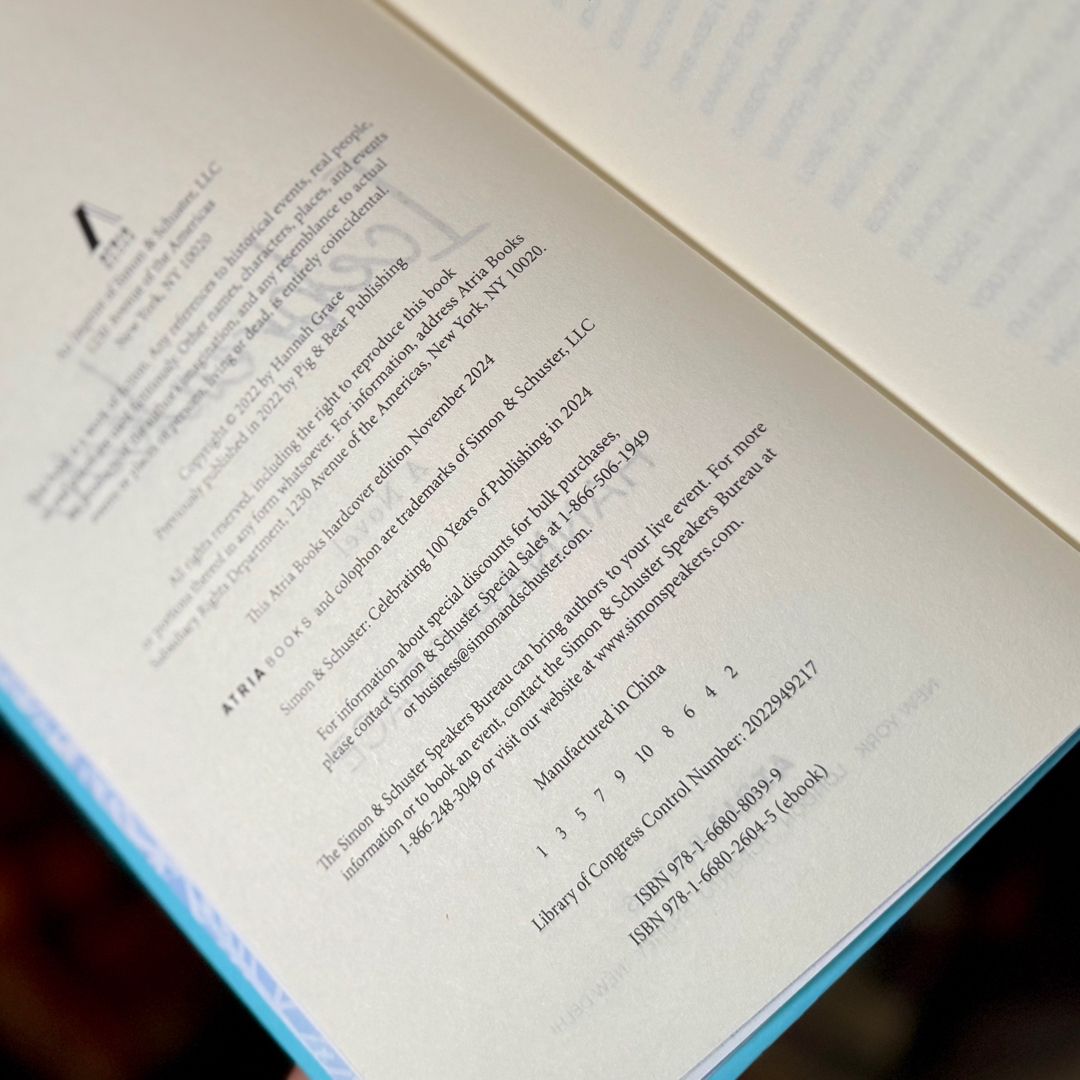 An Imprint of Simon & Schuster, LLC
1230 Avenue of the Americas
New York, NY 10020
This book is a work of fiction. Any references to historical events, real people,
or real places are used fictitiously. Other names, characters, places, and events
are products of the author's imagination, and any resemblance to actual
events or places or persons, living or dead, is entirely coincidental.
Copyright © 2022 by Hannah Grace
Previously published in 2022 by Pig & Bear Publishing
All rights reserved, including the right to reproduce this book
or portions thereof in any form whatsoever. For information, address Atria Books
Subsidiary Rights Department, 1230 Avenue of the Americas, New York, NY 10020.
This Atria Books hardcover edition November 2024
ATRIA BOOKS and colophon are trademarks of Simon & Schuster, LLC
Simon & Schuster: Celebrating 100 Years of Publishing in 2024
For information about special discounts for bulk purchases,
please contact Simon & Schuster Special Sales at 1-866-506-1949
or business@simonandschuster.com.
The Simon & Schuster Speakers Bureau can bring authors to your live event. For more
information or to book an event, contact the Simon & Schuster Speakers Bureau at
1-866-248-3049 or visit our website at www.simonspeakers.com.
Manufactured in China
1 3 5 7 9 10 8 6 4 2
Library of Congress Control Number: 2022949217
ISBN 978-1-6680-8039-9
ISBN 978-1-6680-2604-5 (ebook)